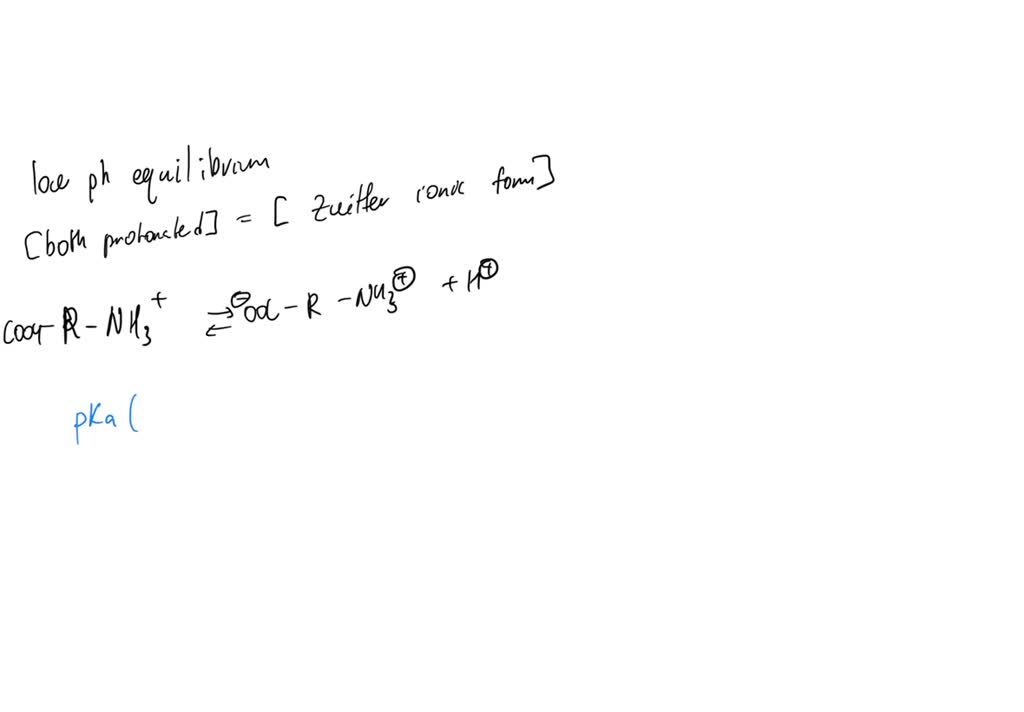 low ph equilibrium
[both protonated] = [ Zwitter ionic form]
COOH-R-NH₃⁺ ⇌ ⊖OOC-R-NH₃⊕ + H⊕
pKa (